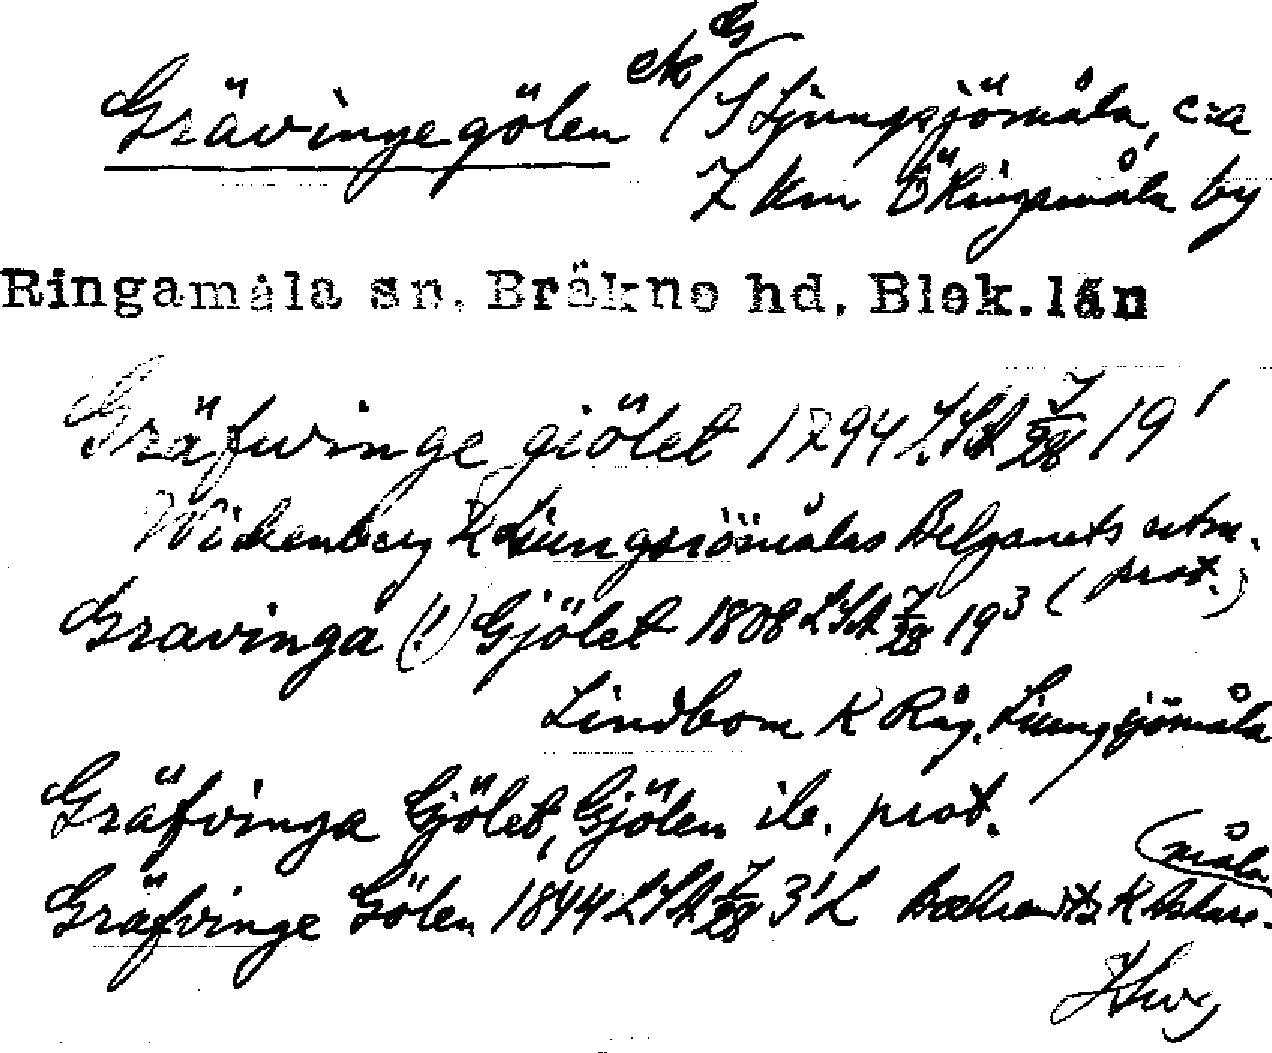 Grävingegölen ek G S Ljungsjömåla, c:a
7 km Ö Ringamåla by
Ringamåla sn. Bräkne hd. Blek.län
Gräfwinge giölet 1794 LSA 19¹
Wickenberg K Liungsiömålas Belganets utm.
prot.)
Gravinga (!) Gjölet 1808 LSA 19³ (
Lindbom K Råg. Liungsjömåla
Gräfvinga Gjölet, Gjölen ib. prot.
Gräfvinge Gölen 1844 LSA 3¹ L K
måla